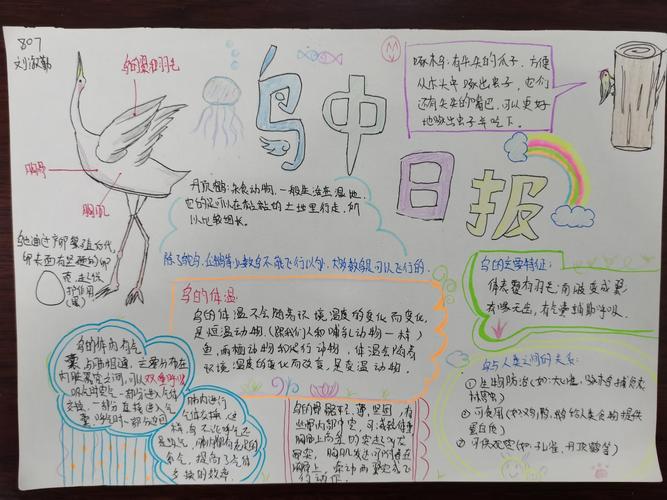 807
刘淑勤
鸟的翼和羽毛
胸骨
胸肌
鸟中
日报
啄木鸟:有尖尖的爪子,方便
从木中啄出虫子,它们
还有尖尖的嘴巴,可以更好
地啄出虫子并吃下。
丹顶鹤:杂食动物,一般生活在湿地,
它的足可以在粘粘的土地里行走,所
以比较细长。
除了鸵鸟、企鹅等少数鸟不能飞行以外,大多数鸟是可以飞行的。
鸟通过产卵繁殖后代
卵表面有坚硬的卵
壳,起保
护作用
鸟的体温:
鸟的体温不会随着环境温度的变化而变化,
是恒温动物。(跟我们人和哺乳动物一样)
鱼,两栖动物和爬行动物,体温会随着
环境温度的变化而改变,是变温动物。
鸟的主要特征:
体表覆有羽毛;前肢变成翼
有喙无齿,有气囊辅助呼吸。
鸟与人类之间的关系:
① 生物防治(如:大山雀,啄木鸟捕食农
林害虫)
② 可食用(如:鸡、鸭、鹅给人类食物提供
蛋白质)
③ 可供观赏(如:孔雀,丹顶鹤等)
鸟的体内有气
囊与肺相通,主要分布在
内脏器官之间,可以双重呼吸
吸气时空气一部分进入气体
交换,一部分直接进入气
囊,呼气时一部分
肺内进行
气体交换,这
样,鸟不论呼气还
是吸气,肺内都有充足的
氧气,提高了气体
交换的效率
鸟的骨骼轻、薄、坚固,有
些骨内部中空,可减轻体重
胸骨上的